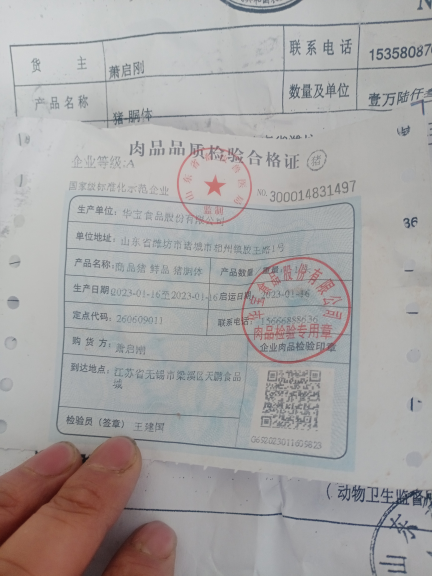 货 主
萧启刚
联系电话
产品名称
猪胴体
数量及单位
肉品品质检验合格证
企业等级:A
国家级标准化示范企业
NO.300014831497
生产单位: 华宝食品股份有限公司
单位地址: 山东省潍坊市诸城市相州镇
产品名称: 商品猪 鲜品 猪胴体
产品数量
生产日期:2023-01-16至2023-01-16
启运日期:2023-01-16
定点代码: 260609011
联系电话:
肉品检验专用章
企业肉品检验印章
购 货 方: 萧启刚
到达地点: 江苏省无锡市梁溪区天鹏食品
城
检验员(签章) 王建国
(动物卫生监督
山东
36